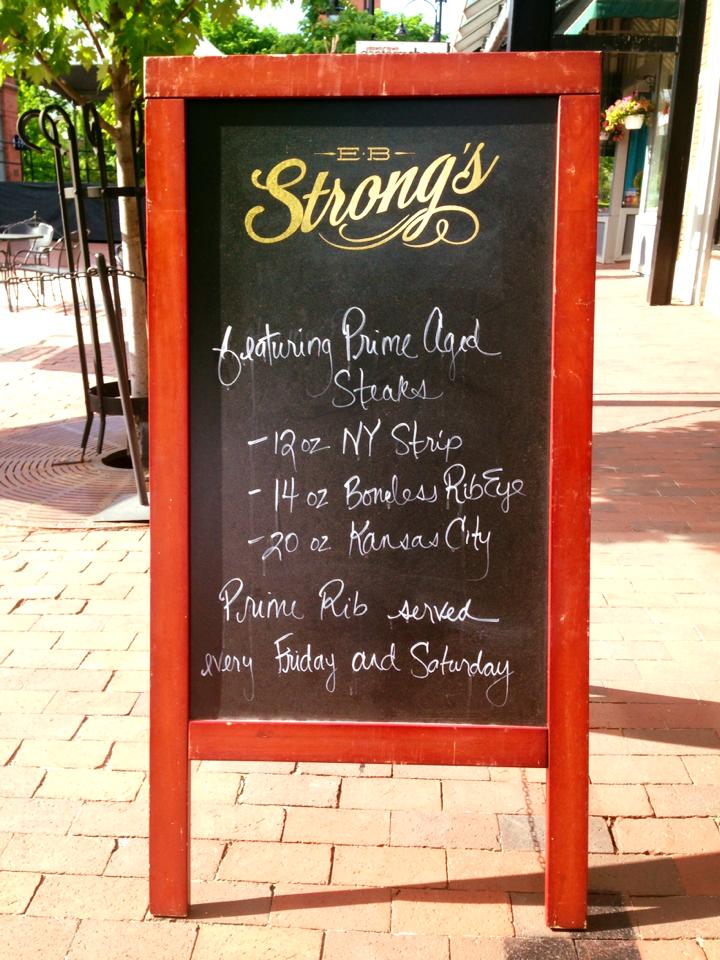 E·B
Strong's
featuring Prime Aged
Steaks
- 12 oz NY Strip
- 14 oz Boneless RibEye
- 20 oz Kansas City
Prime Rib served
every Friday and Saturday